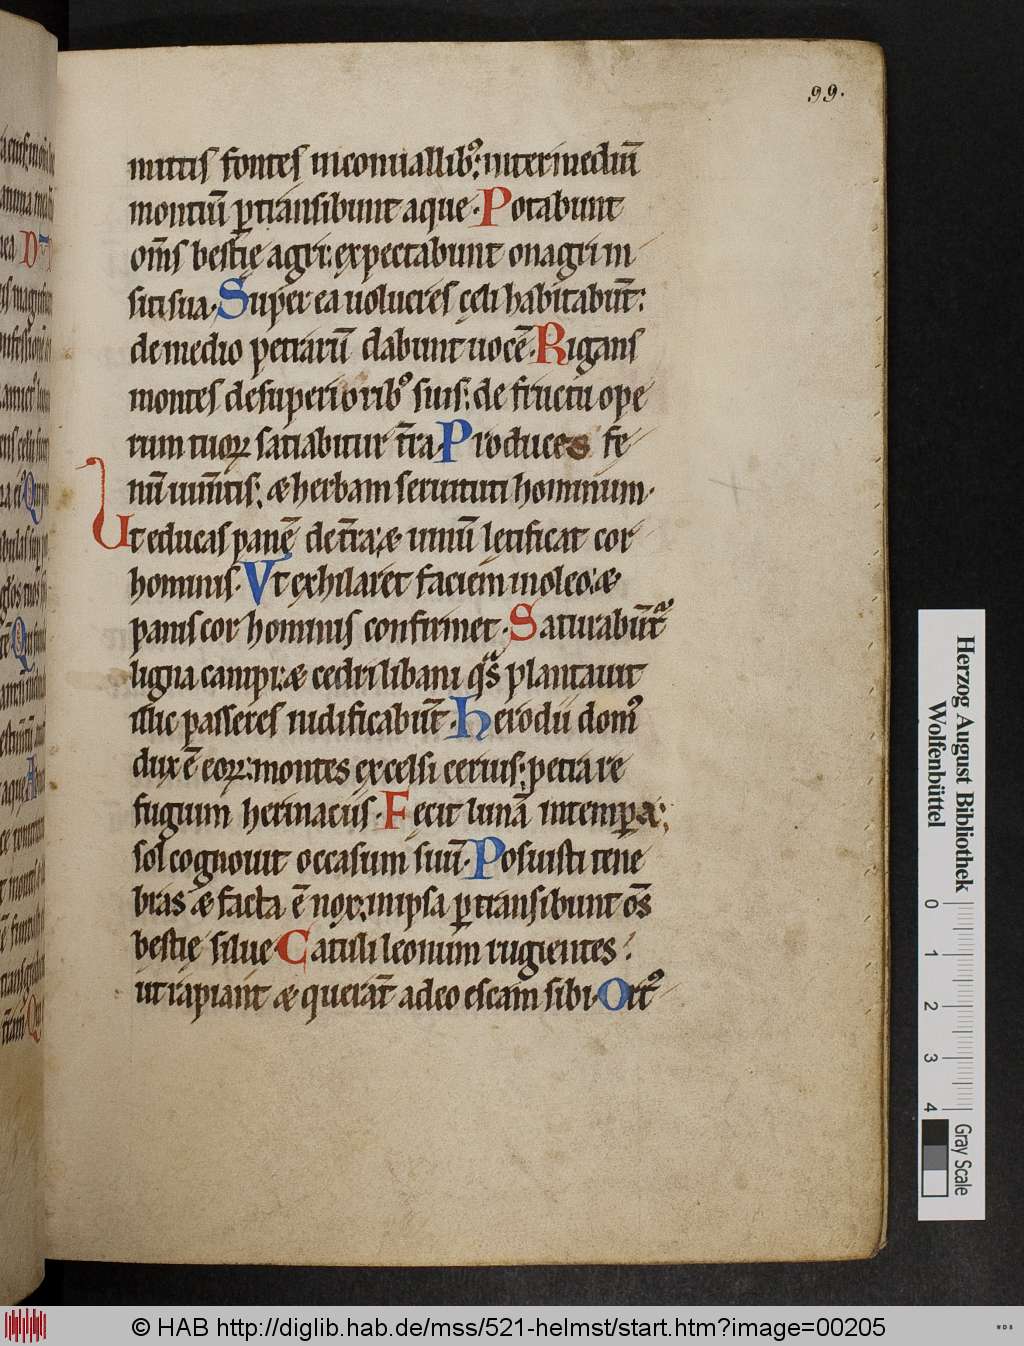 99.
mittis fontes in conuallib᷒: inter mediū
montiū ꝑtransibunt aque. Potabunt
om̄s bestię agri: expectabunt onagri in
siti sua. Super ea uolucres cęli habitabūt:
de medio petrarū dabunt uocē. Rigans
montes de superiorib᷒ suis: de fructu ope
rum tuoꝝ satiabitur t̄ra. Produces fe
nū iumtis: & herbam seruituti hominum.
Ut educas panē de t̄ra: & uinū lętificat cor
hominis. Vt exhilaret faciem in oleo: &
panis cor hominis confirmet. Saturabūtᷣ
ligna campi: & cedri libani qͣs plantauit
illic passeres nidificabūt. Herodii dom᷒
dux ē eoꝝ: montes excelsi ceruis: petra re
fugium herinaciis. Fecit lunā in tempꝑa:
sol cognouit occasum suū. Posuisti tene
bras & facta ē nox: in ipsa ꝑtransibunt oēs
bestię silue. Catuli leonum rugientes:
ut rapiant & querāt a deo escam sibi. Ort᷒
Herzog August Bibliothek
Wolfenbüttel
0 1 2 3 4
Gray Scale
© HAB http://diglib.hab.de/mss/521-helmst/start.htm?image=00205